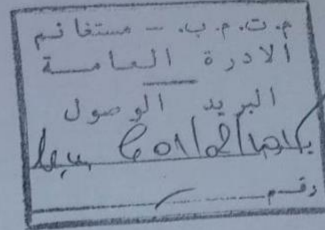 م.ت.م.ب. - مستغانم
الادرة العامــة
البريد الوصول
رقم